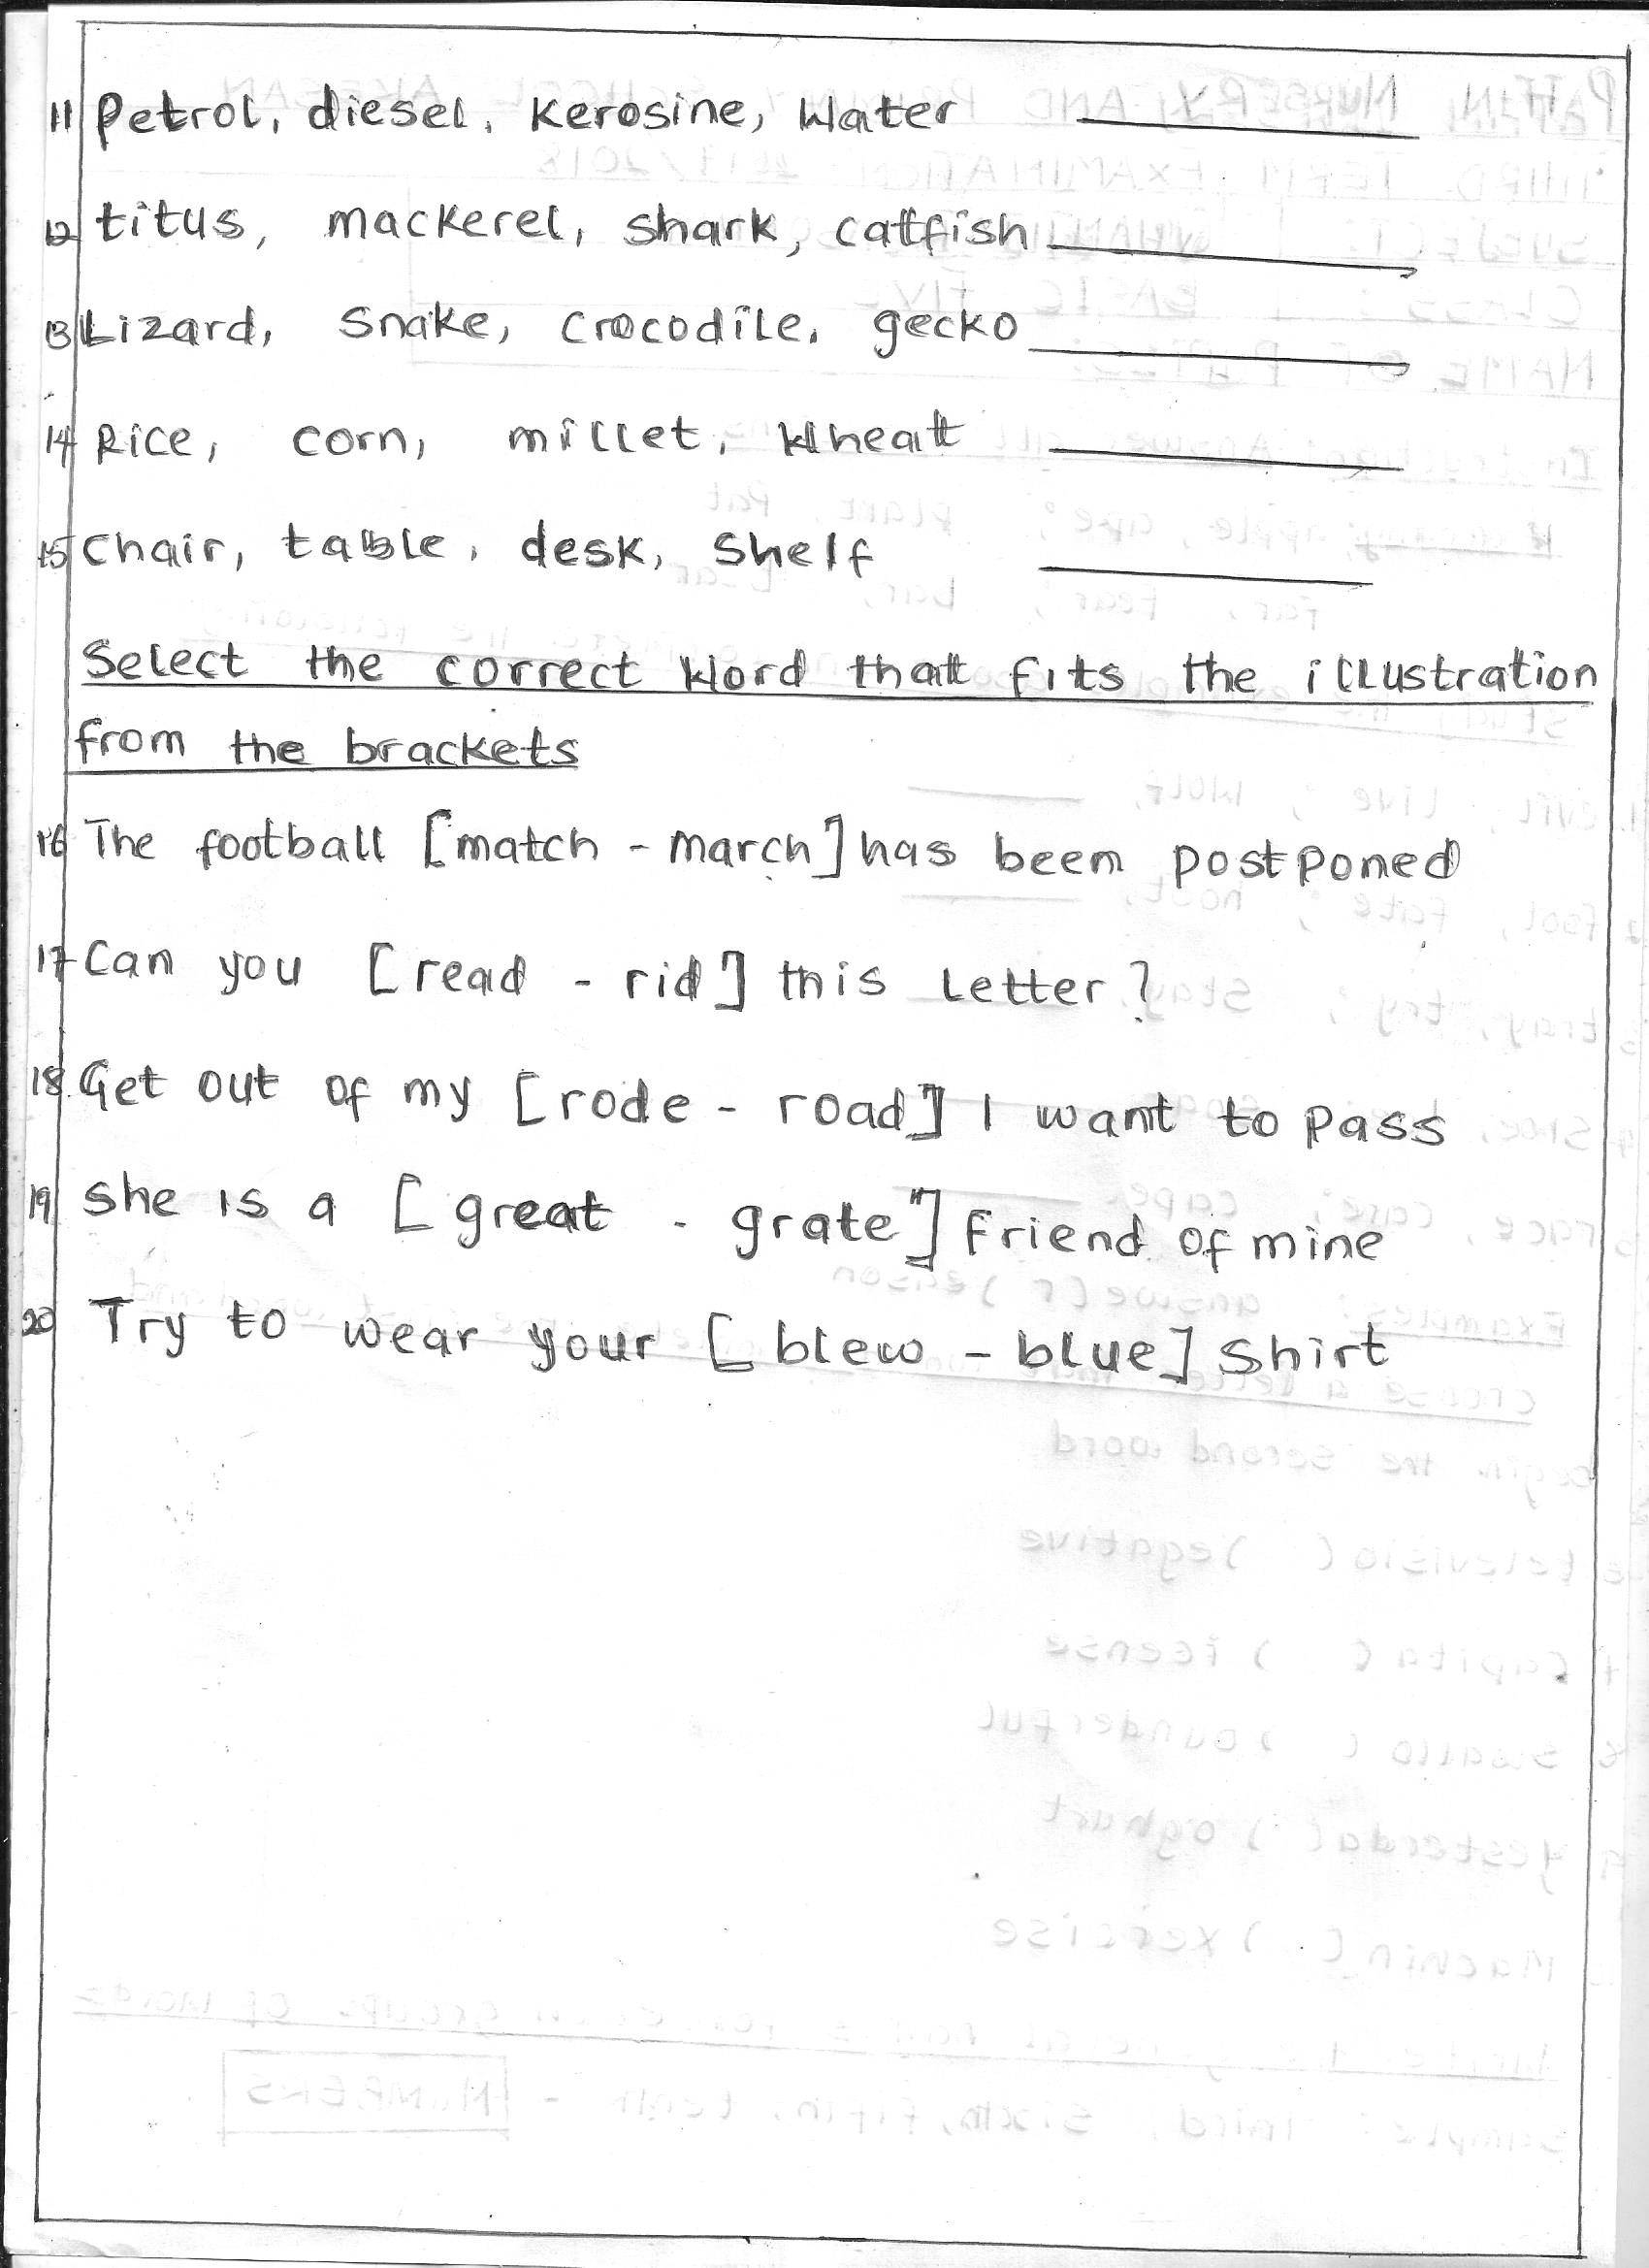 11 Petrol, diesel, Kerosine, Water
12 titus, mackerel, shark, catfish
13 Lizard, Snake, crocodile, gecko
14 Rice, corn, millet, Wheat
15 Chair, table, desk, Shelf
Select the correct Word that fits the illustration
from the brackets
16 The football [match - march] has been postponed
17 Can you [read - rid] this letter?
18. Get out of my [rode - road] I want to pass
19 She is a [great - grate] friend of mine
20 Try to wear your [blew - blue] shirt